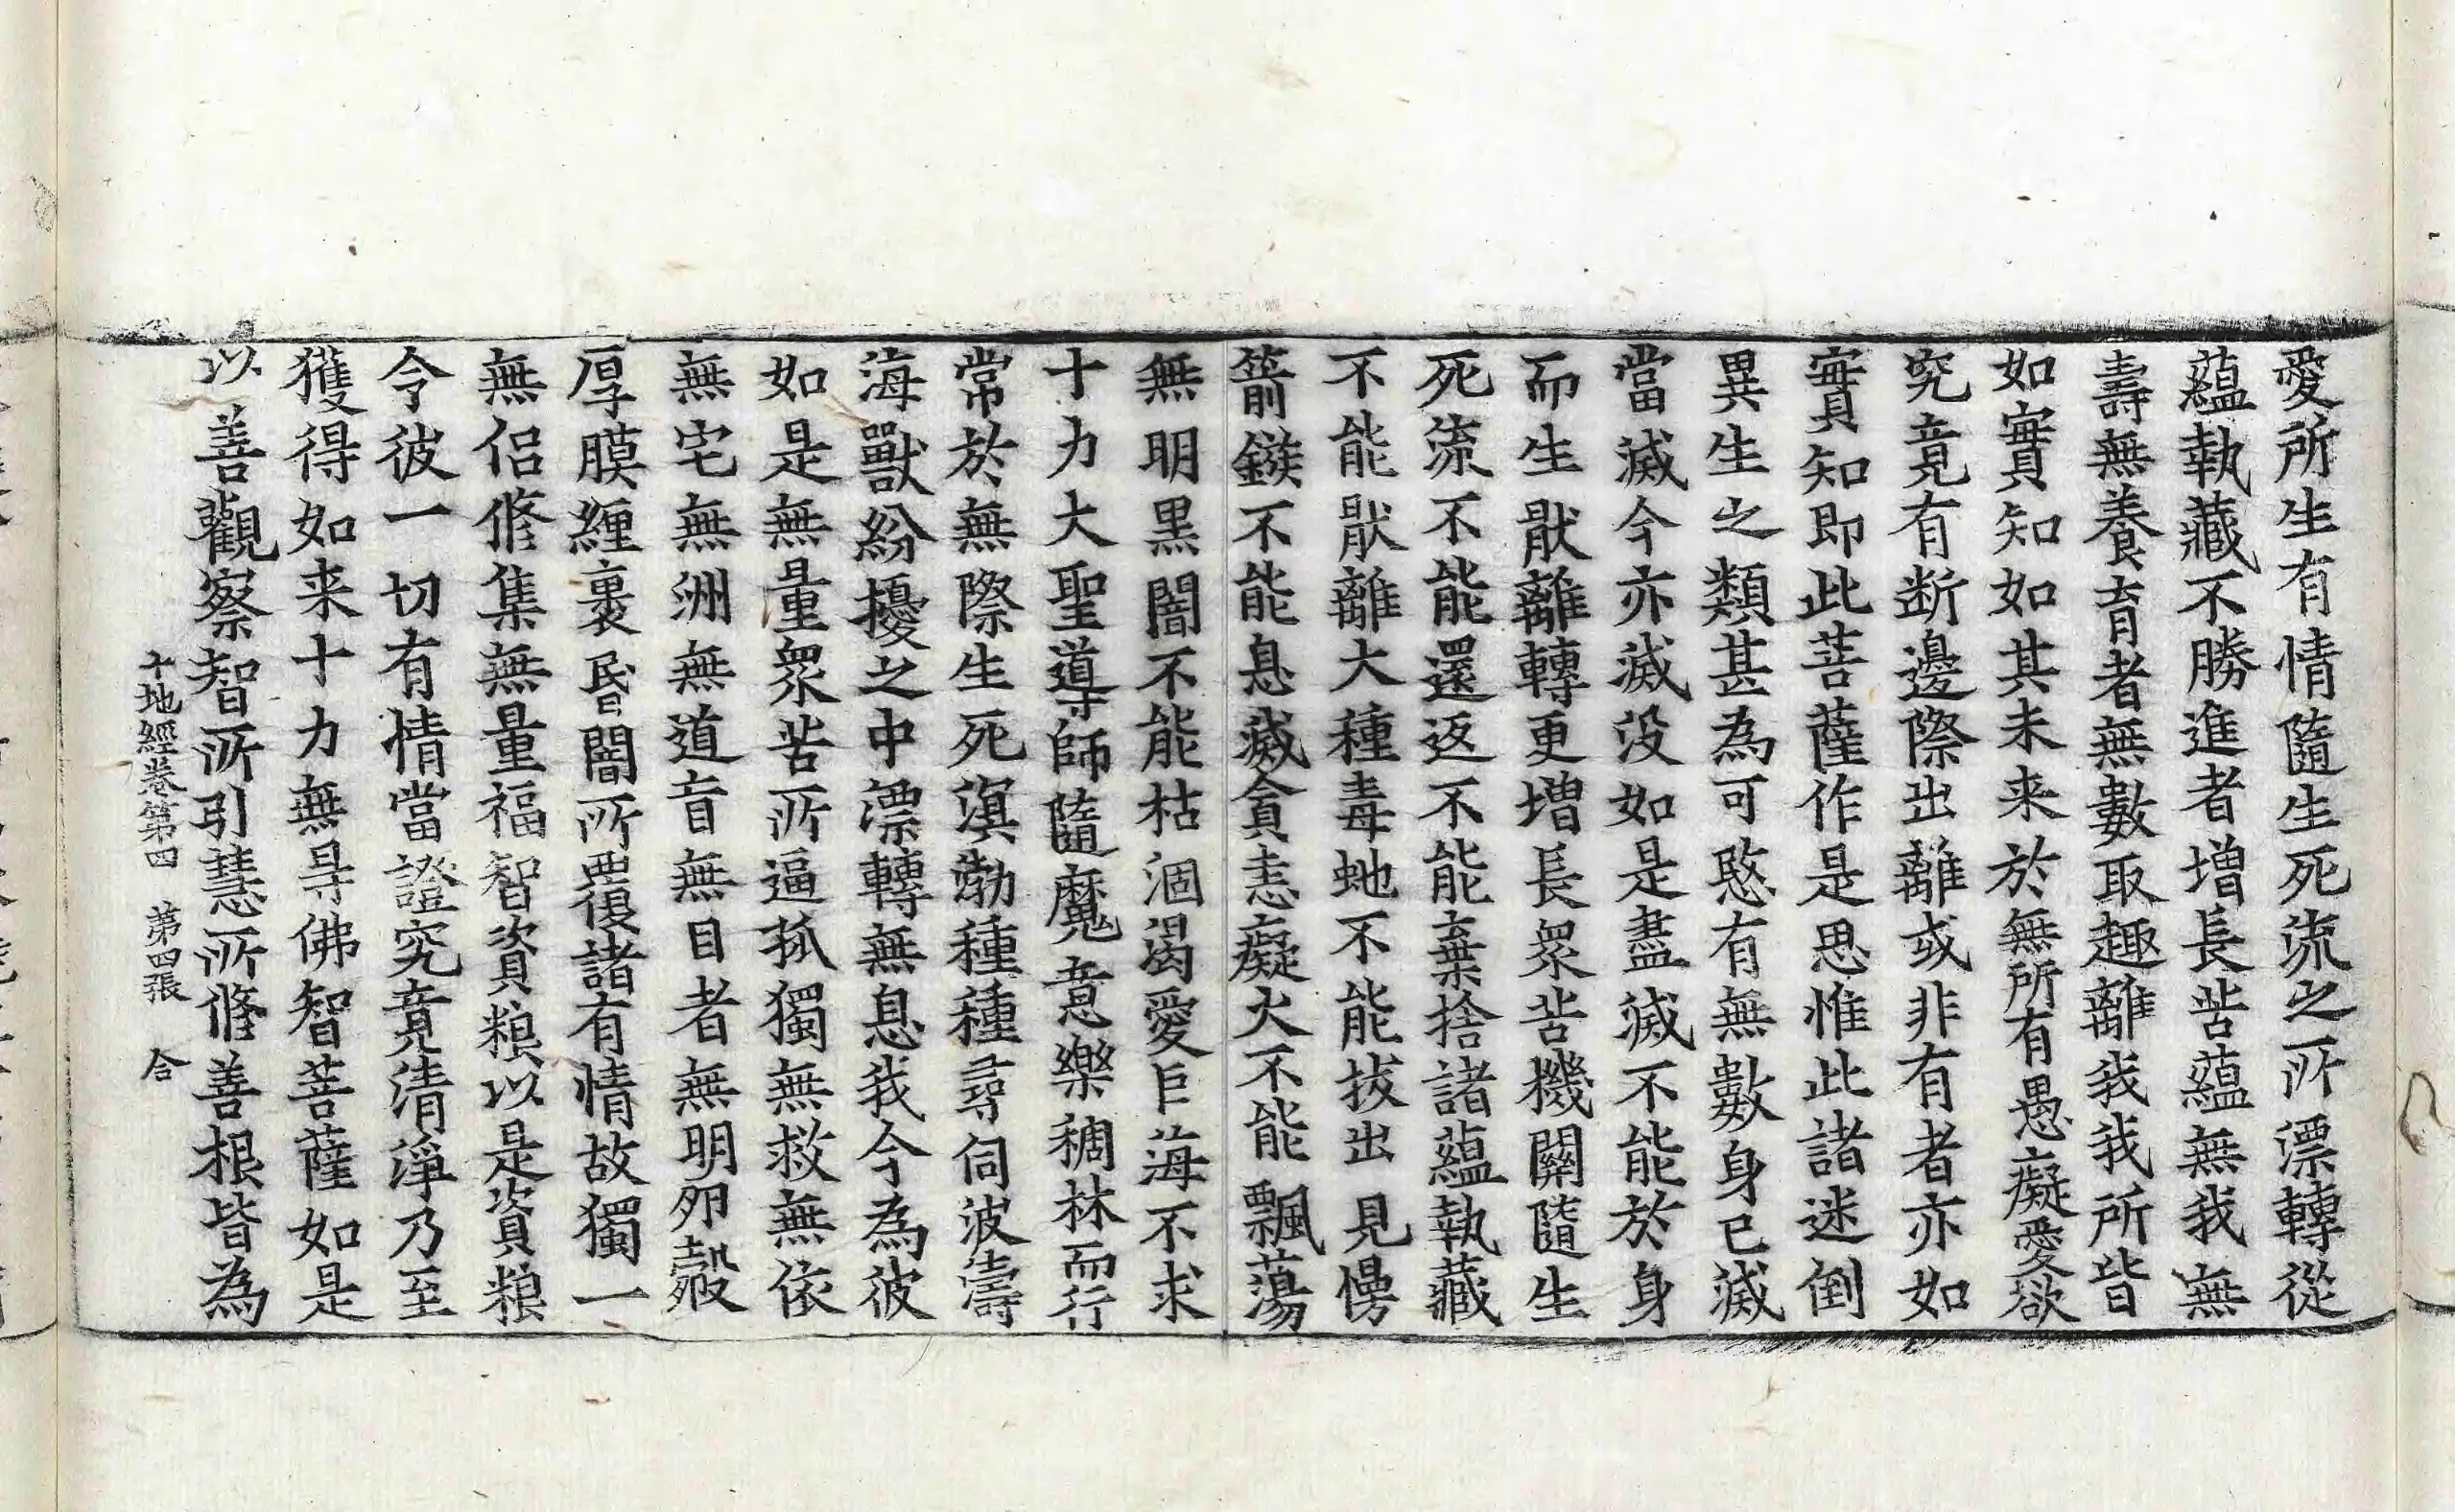 愛所生有情隨生死流之所漂轉從
蘊執藏不勝進者增長苦蘊無我無
壽無養育者無數取趣離我我所皆
如實知如其未来於無所有愚癡愛欲
究竟有断邊際出離或非有者亦如
實知即此菩薩作是思惟此諸迷倒
異生之類甚為可愍有無數身已滅
當滅今亦滅沒如是盡滅不能於身
而生猒離轉更增長眾苦機關隨生
死流不能還返不能棄捨諸蘊執藏
不能猒離大種毒虵不能拔出見慢
箭鏃不能息滅貪恚癡火不能飄蕩
無明黑闇不能枯涸渴愛巨海不求
十力大聖導師隨魔意樂稠林而行
常於無際生死溟渤種種尋伺波濤
海獸紛擾之中漂轉無息我今為彼
如是無量眾苦所逼孤獨無救無依
無宅無洲無道盲無目者無明夘㲉
厚膜纏裹昬闇所覆諸有情故獨一
無侶修集無量福智資粮以是資粮
令彼一切有情當證究竟清淨乃至
獲得如来十力無㝵佛智菩薩如是
以善觀察智所引慧所修善根皆為
十地經卷第四　第四張　合